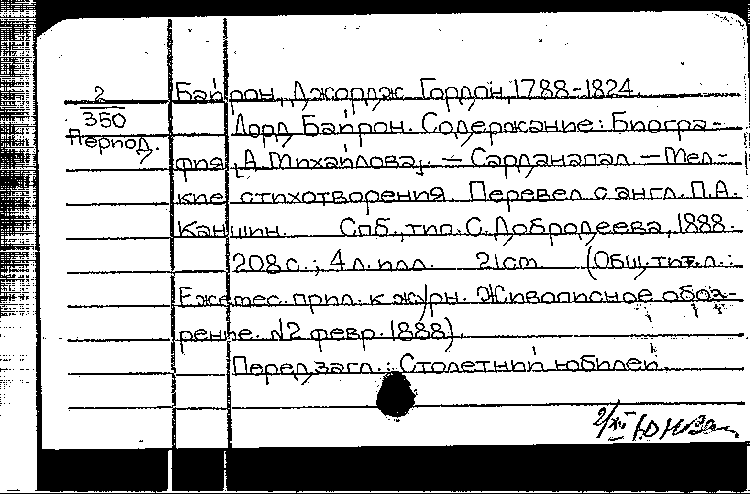 2
350
Период.
Байрон, Джордж Гордон, 1788-1824.
Лорд Байрон. Содержание: Биогра-
фия [А. Михайлова]. — Сарданапал. — Мел-
кие стихотворения. Перевел с англ. П.А.
Каншин. Спб., тип. С. Добродеева, 1888.
208 с.; 4 л. илл. 21 cm (Общ. тит. л.:
Ежемес. прил. к журн. Живописное обоз-
рение. №2 февр. 1888).
Перед загл.: Столетний юбилей.